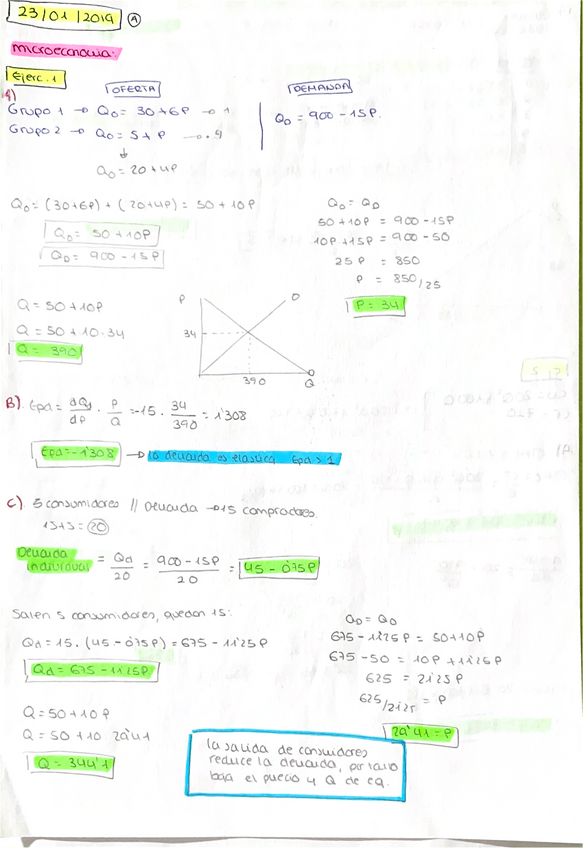 23/01/2019 A
microeconomia:
Ejerc. 1
A)
OFERTA
Grupo 1 → Qo = 30+6P → 1
Grupo 2 → Qo = 5+P → .4
↓
Qo = 20+4P
DEMANDA
QD = 900-15P.
Qo = (30+6P) + (20+4P) = 50+10P
Qo = 50+10P
QD = 900-15P
Qo = QD
50+10P = 900-15P
10P+15P = 900-50
25P = 850
P = 850/25
P = 34
Q = 50+10P
Q = 50+10·34
Q = 390
P
O
34
390
Q
B). Epd = dQd/dP · P/Q = -15 · 34/390 = 1'308
Epd = -1'308 → la demanda es elastica Epd > 1
C). 5 consumidores // Demanda → 15 compradores.
15+5 = 20
Demanda individual = Qd/20 = 900-15P/20 = 45-0'75P
Salen 5 consumidores, quedan 15:
Qd = 15·(45-0'75P) = 675-11'25P
Qd = 675-11'25P
QD = QO
675-11'25P = 50+10P
675-50 = 10P+11'25P
625 = 21'25P
625/21'25 = P
29'41 = P
Q = 50+10P
Q = 50+10·29'41
Q = 344'1
la salida de consumidores
reduce la demanda, por tanto
baja el precio y Q de eq.